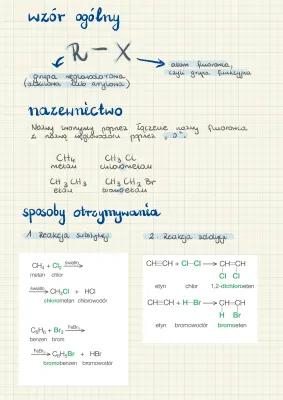 wzór ogólny
R — X
grupa węglowodorowa
(alkilowa lub arylowa)
atom fluorowca,
czyli grupa funkcyjna
nazewnictwo
Nazwy tworzymy poprzez łączenie nazwy fluorowca
z nazwą węglowodoru poprzez "o".
CH4 CH3 Cl
metan chlorometan
CH3 CH3 CH3 CH2 Br
etan bromoetan
sposoby otrzymywania
1. Reakcja substytucji
CH4 + Cl2 światło→
metan chlor
światło→ CH3Cl + HCl
chlorometan chlorowodór
C6H6 + Br2 FeBr3→
benzen brom
FeBr3→ C6H5Br + HBr
bromobenzen bromowodór
2. Reakcja addycji
CH≡CH + Cl—Cl → CH=CH
Cl Cl
etyn chlor 1,2-dichloroeten
CH≡CH + H—Br → CH=CH
H Br
etyn bromowodór bromoeten